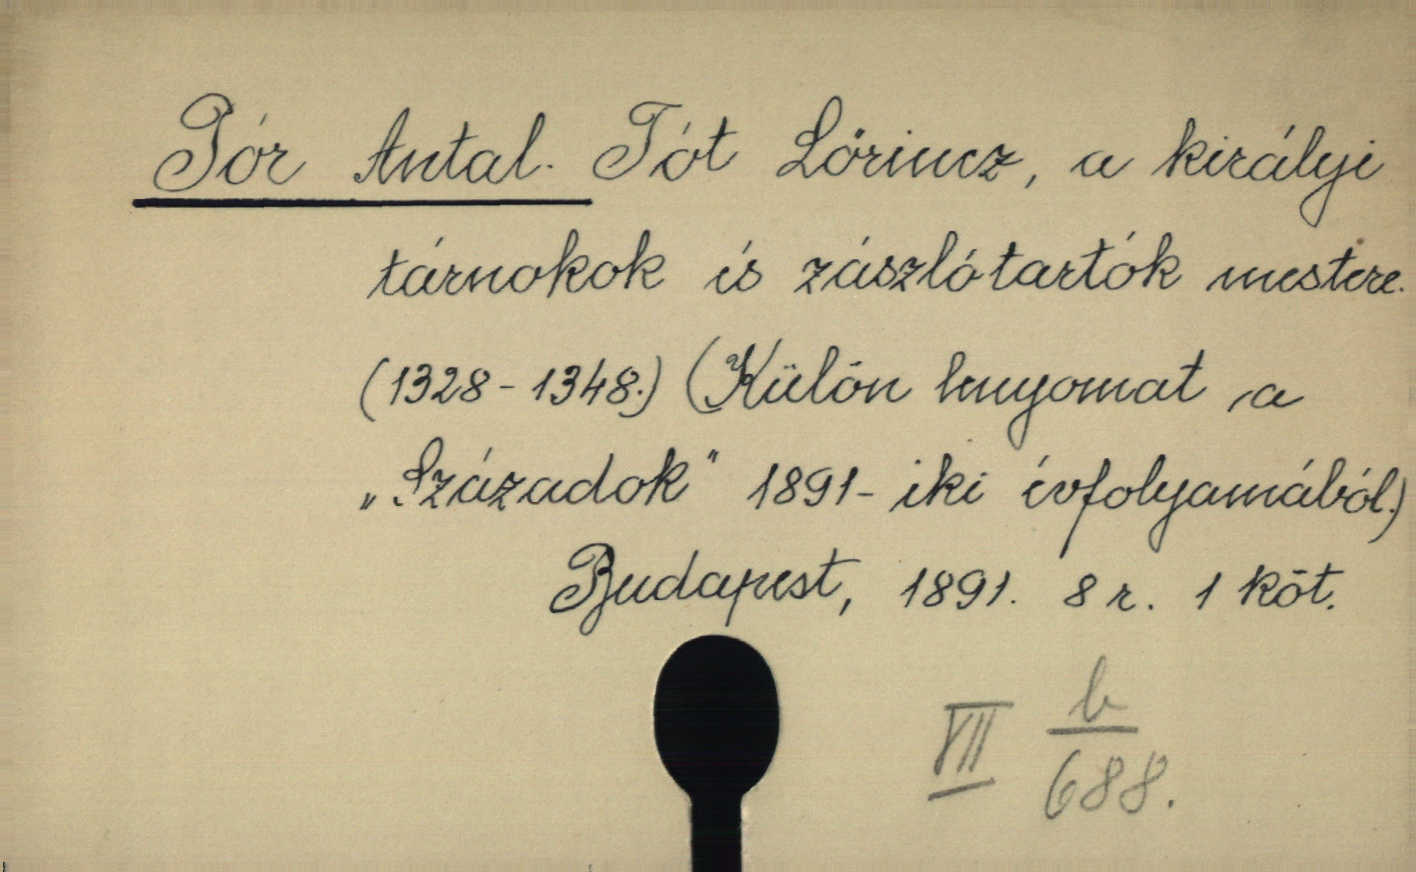 Pór Antal. Tót Lőrincz, a királyi
tárnokok és zászlótartók mestere.
(1328-1348.) (Külön lenyomat a
„Századok" 1891-iki évfolyamából.)
Budapest, 1891. 8 r. 1 köt.
VII b/688.